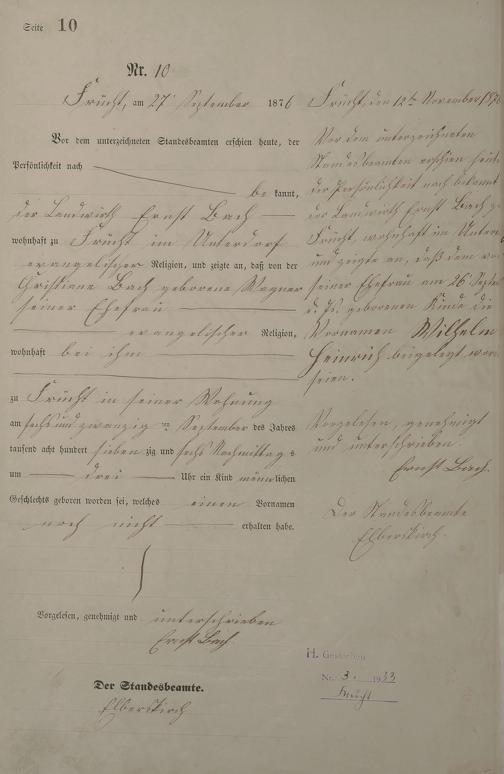 Seite 10
Nr. 10
Frücht, am 27ᵗ September 1876
Vor dem unterzeichneten Standesbeamten erschien heute, der
Persönlichkeit nach
be kannt,
der Landwirth Ernst Bach
wohnhaft zu Frücht im Unterdorf
evangelischer Religion, und zeigte an, daß von der
Christiane Bach geborene Wagner
seiner Ehefrau
evangelischer Religion,
wohnhaft bei ihm
zu Frücht in seiner Wohnung
am sechs und zwanzig ten September des Jahres
tausend acht hundert sieben zig und sechs Nachmittags
um drei Uhr ein Kind männlichen
Geschlechts geboren worden sei, welches einen Vornamen
noch nicht erhalten habe.
Vorgelesen, genehmigt und unterschrieben
Ernst Bach.
Der Standesbeamte.
Elberskirch
Frücht, den 12ten November 1876
Vor dem unterzeichneten
Standesbeamten erschien heute,
der Persönlichkeit nach bekannt
der Landwirth Ernst Bach zu
Frücht, wohnhaft im Unter
und zeigte an, daß dem von
seiner Ehefrau am 26 Septem
d. Js. geborenen Kinde die
Vornamen Wilhelm
Heinrich beigelegt wor
seien.
Vorgelesen, genehmigt
und unterschrieben.
Ernst Bach.
Der Standesbeamte
Elberskirch.
H. Gestorben
Nr. 3. 1933
Frücht